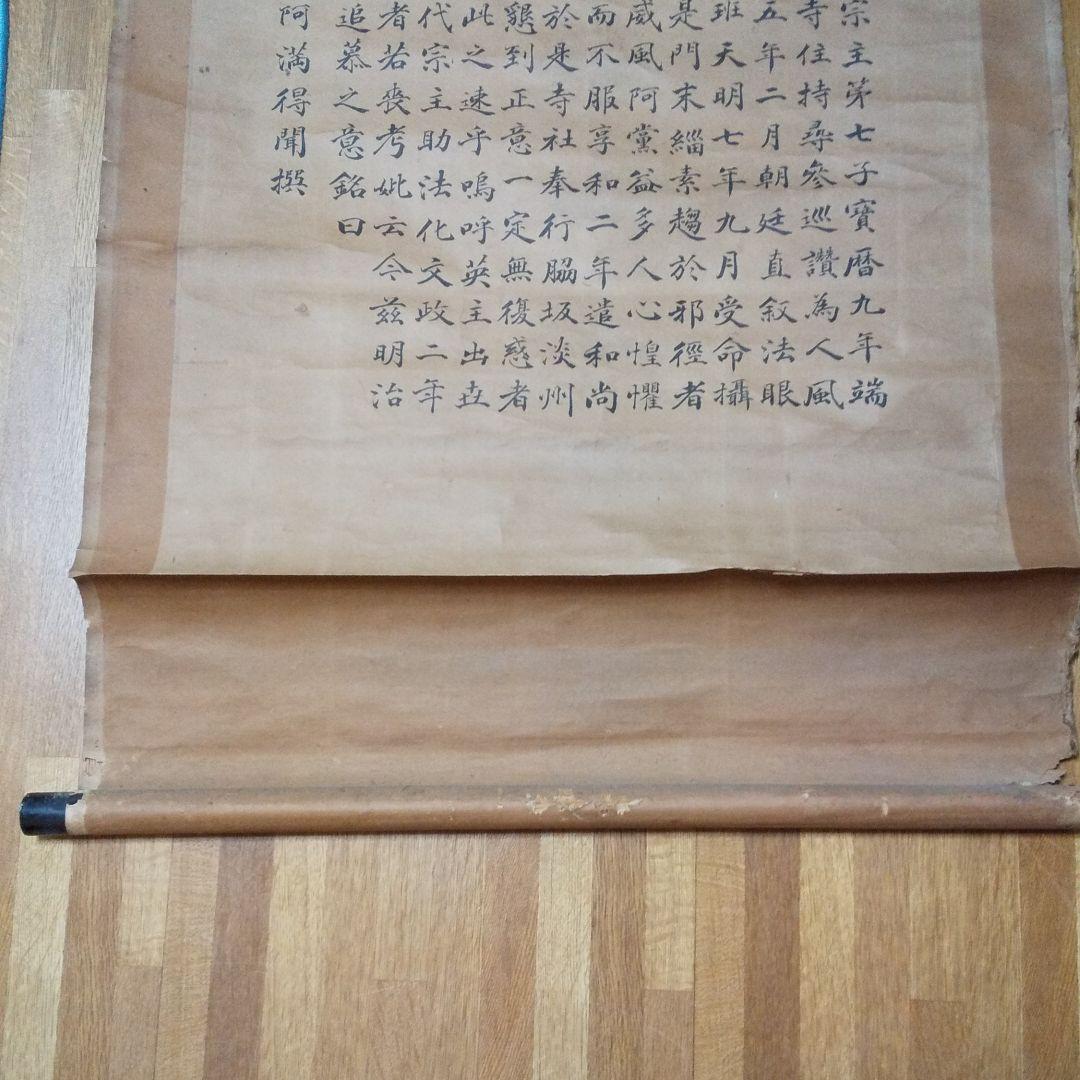 宗主第七子寶曆九年端
寺住持尋參巡讚為人風
五年二月朝廷直叙法眼
班天明七年九月受命攝
是門末緇素趨於邪徑者
威風阿黨益多人心惶懼
而不服享和二年遣和尚
於是寺社奉行脇坂淡州
懇到正意一定無復惑者
此之速乎嗚呼英主出᠎
代宗主助法化文政二年
者若喪考妣云今茲明治
追慕之意銘曰
阿満得聞撰